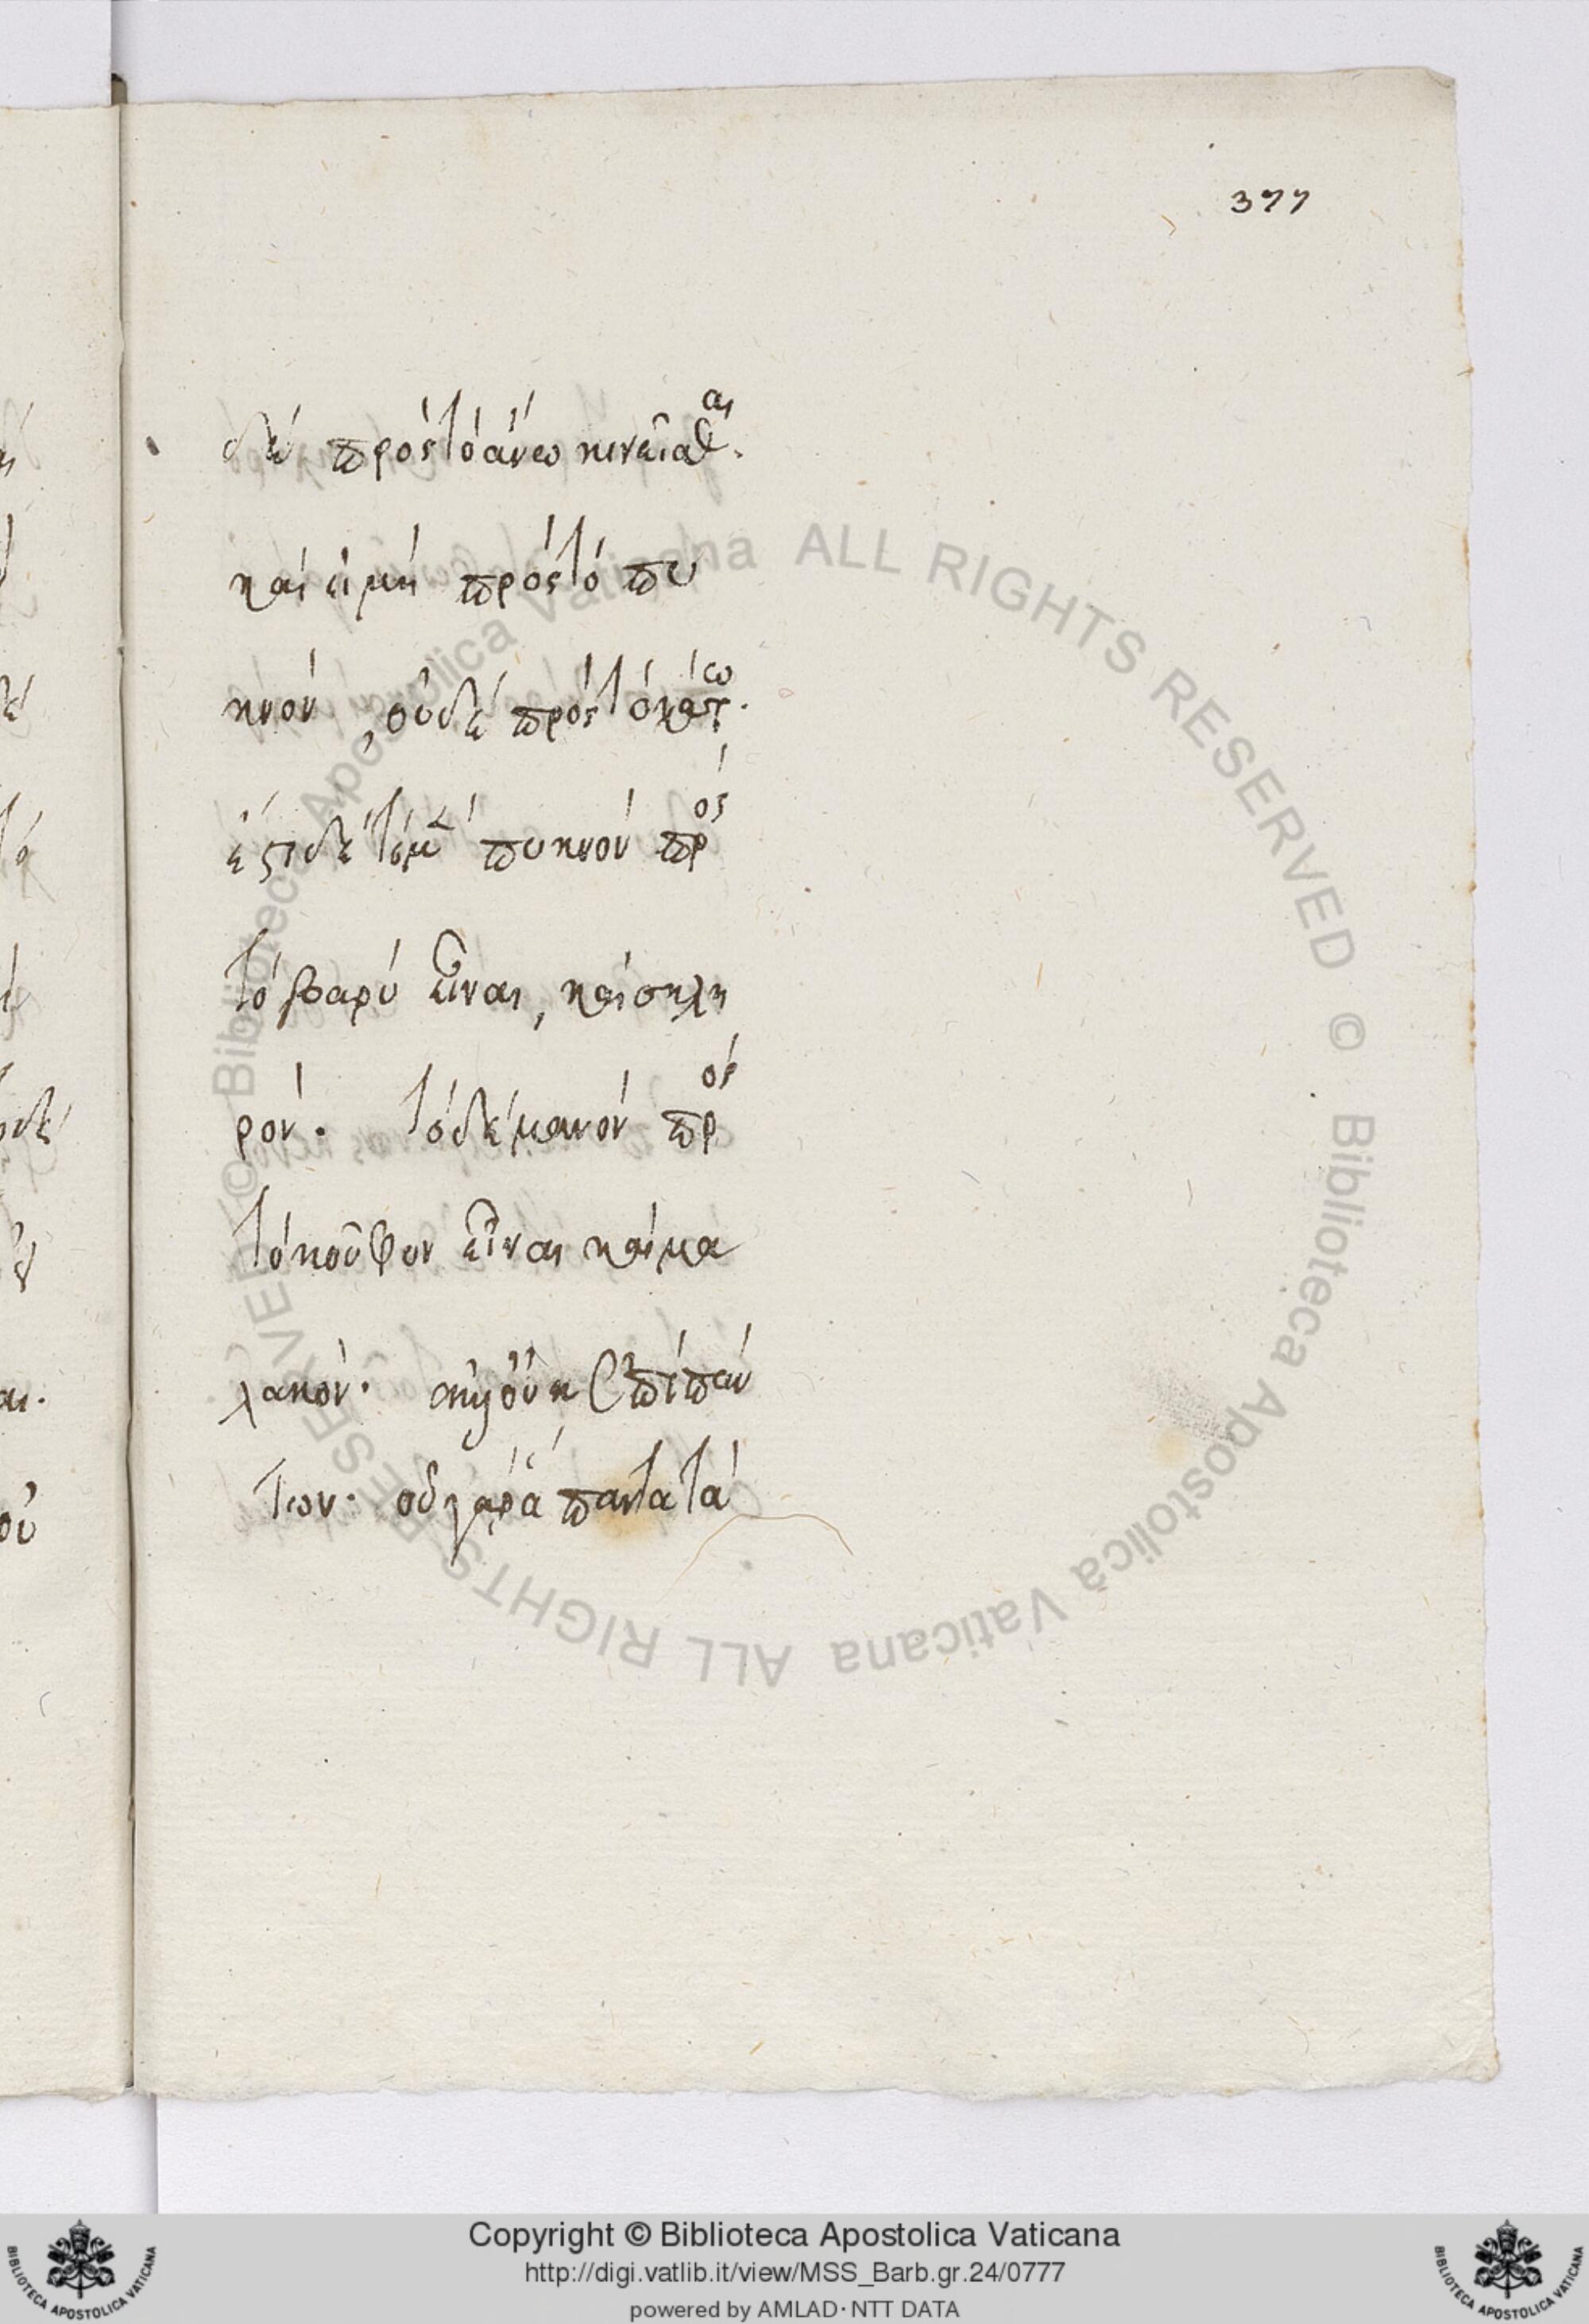 377
δὲ πρὸς τὸ ἄνω κινεῖσθαι.
καὶ εἰ μὴ πρὸς τὸ πυ
κνὸν, οὐδὲ πρὸς τὸ κάτω.
ἔστι δὲ τὸ μὲν πυκνὸν πρὸς
τὸ βαρὺ εἶναι, καὶ σκλη
ρόν. τὸ δὲ μανὸν πρὸς
τὸ κοῦφον εἶναι καὶ μα
λακόν.
των. οὐ γὰρ ἃ πάντα τὰ
© Biblioteca Apostolica Vaticana ALL RIGHTS RESERVED © Biblioteca Apostolica Vaticana ALL RIGHTS RESERVED
Copyright © Biblioteca Apostolica Vaticana
http://digi.vatlib.it/view/MSS_Barb.gr.24/0777
powered by AMLAD·NTT DATA
BIBLIOTECA APOSTOLICA VATICANA
BIBLIOTECA APOSTOLICA VATICANA